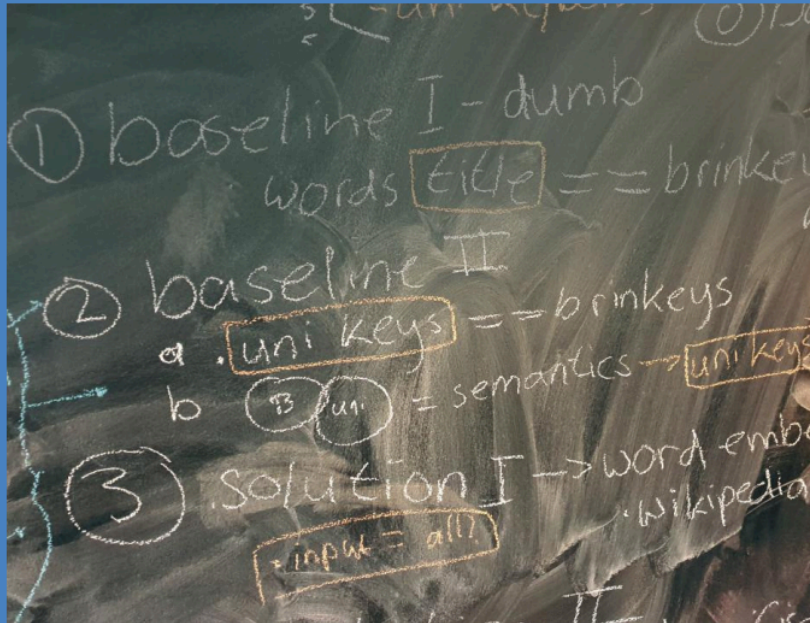 ① baseline I - dumb
words title == brinke
② baseline II
a. uni keys == brinkeys
b B uni = semantics → unikeys
③ .solution I -> word embe
.Wikipedia
.input = all?
II